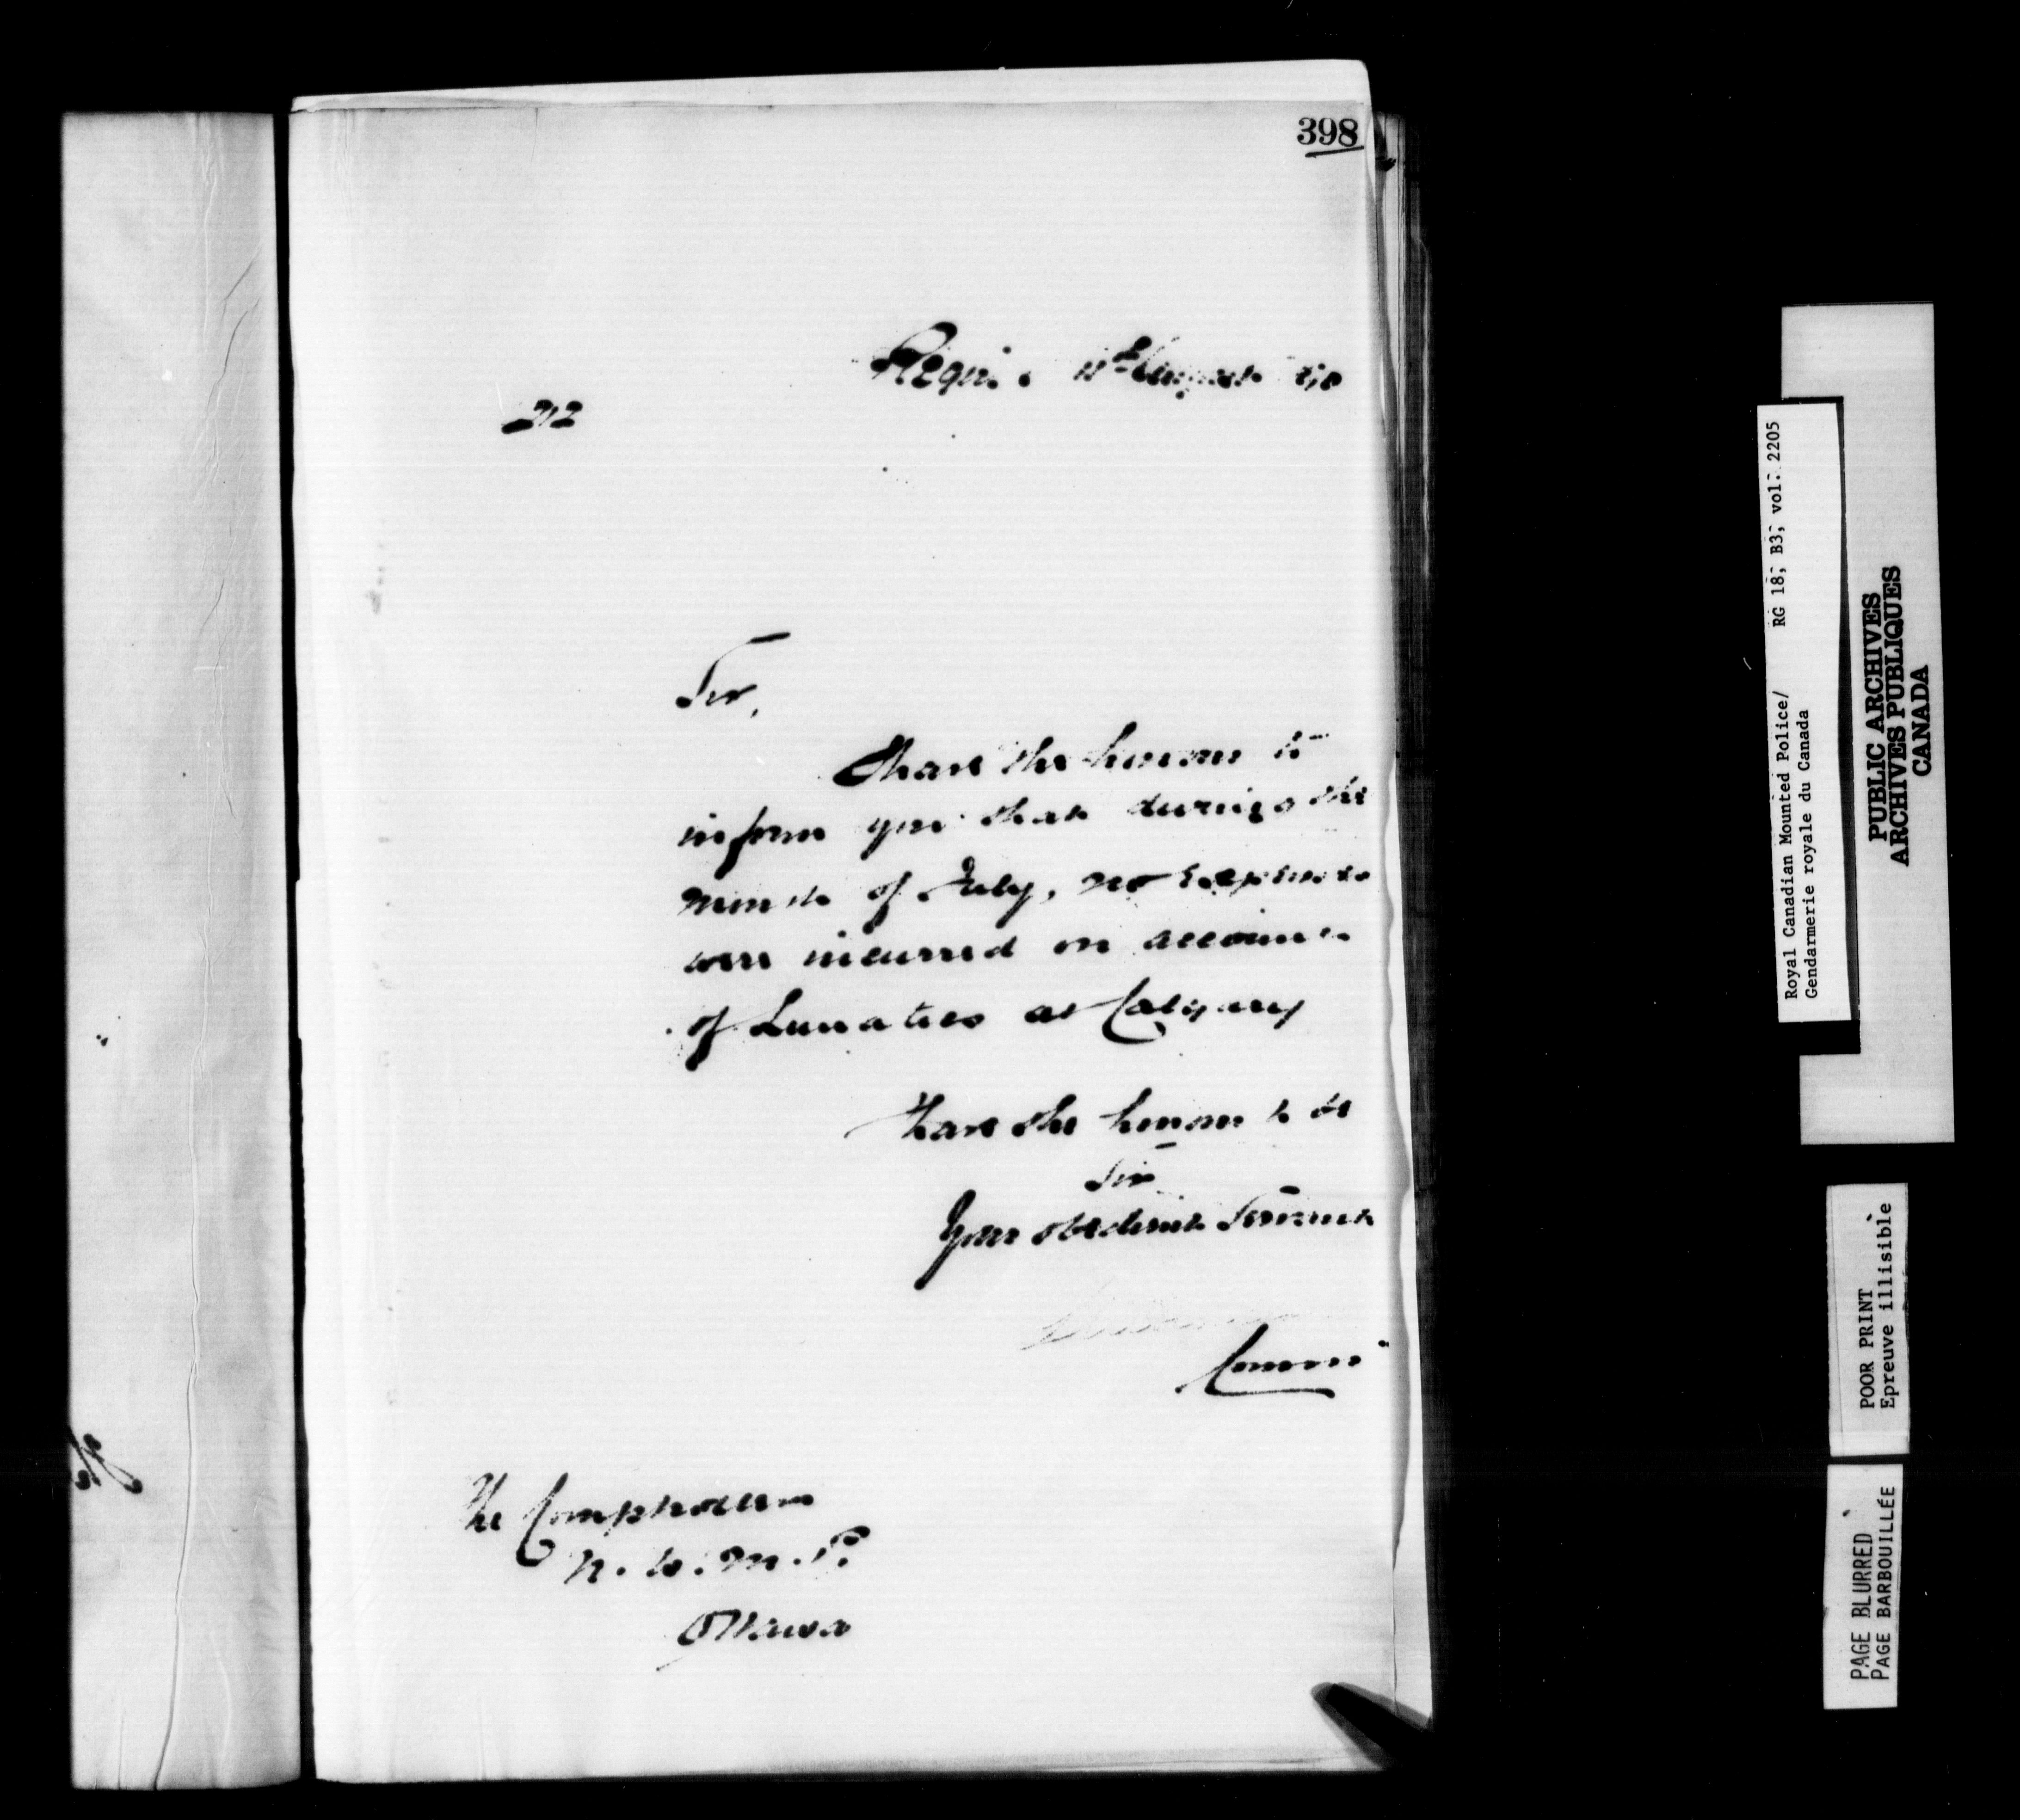 398
Regina 11th August
212
Sir,
I have the honour to
inform you that during the
month of July, no expenses
were incurred on account
of Lunatics at Calgary
I have the honour to be
Sir
Your obedient Servant
Commr
The Comptroller
N.W.M.P.
Ottawa
Royal Canadian Mounted Police/ RG 18, B3, vol. 2205
Gendarmerie royale du Canada
PUBLIC ARCHIVES
ARCHIVES PUBLIQUES
CANADA
POOR PRINT
Epreuve illisible
PAGE BLURRED
PAGE BARBOUILLÉE